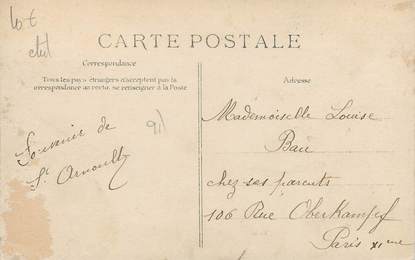 lot
CARTE POSTALE
Correspondance
Tous les pays étrangers n'acceptent pas la
correspondance au recto, se renseigner à la Poste
Adresse
Souvenir de
St Arnoult
Mademoiselle Louise
chez ses parents
106 Rue Oberkampf
Paris XIeme